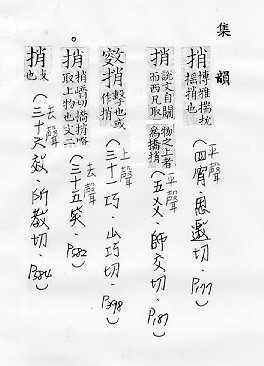 集韻
捎 博雅揣抌
揺捎也
(平聲
四宵·思邀切·P177)
捎 說文自關
而西凡取
物之上者
爲撟捎
(平聲
五爻·師交切·P187)
捎 擊也或
作捎
(上聲
三十一巧·山巧切·P398)
捎 捎嶠切撟捎略
取上物也文二
(去聲
三十五笑·P582)
捎 芟也
(去聲
三十六效·所教切·P584)